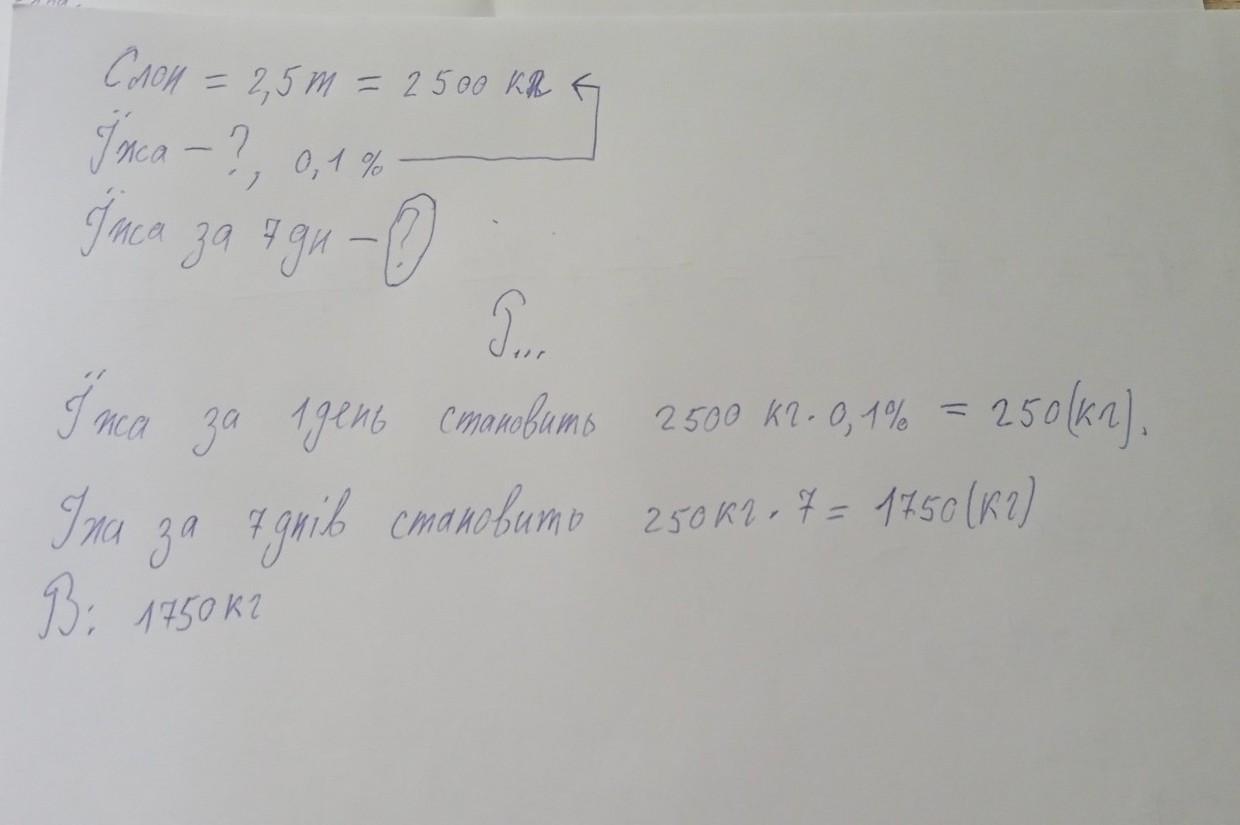 Слон = 2,5т = 2500 кг
Їжа – ?, 0,1%
Їжа за 7дн – ?
Р...
Їжа за 1день становить 2500 кг · 0,1% = 250(кг).
Їжа за 7днів становить 250кг · 7 = 1750(кг)
В: 1750кг